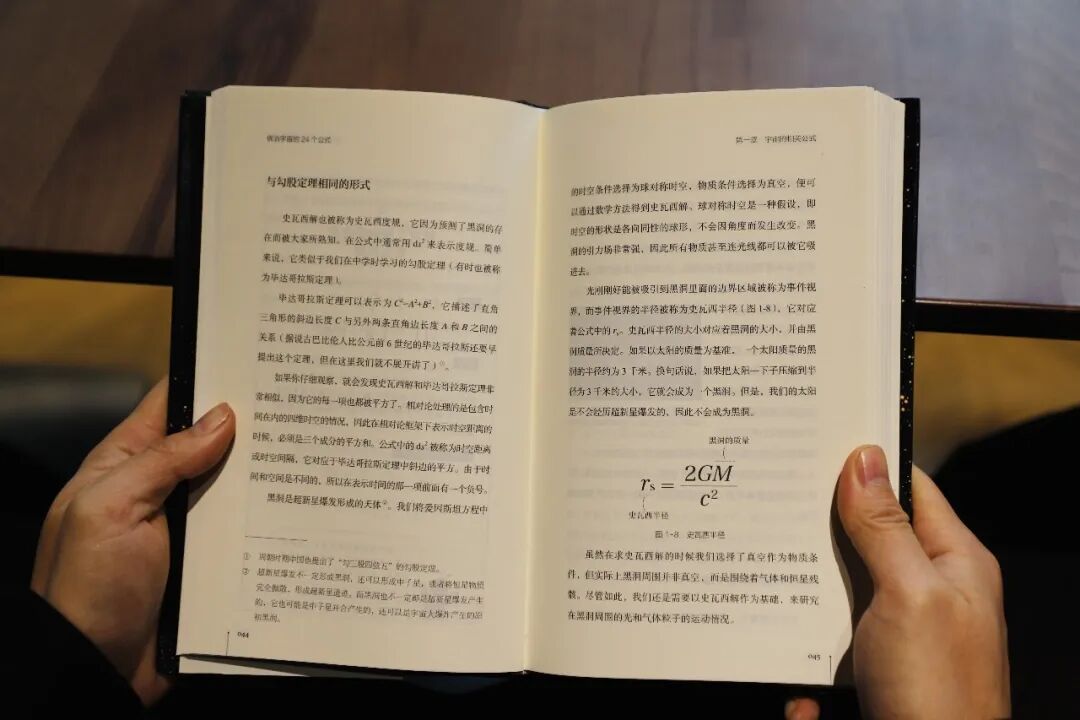 宇宙的24个公式
与勾股定理相同的形式
史瓦西解也被称为史瓦西度规，它因为预测了黑洞的存
在而被大家所熟知。在公式中通常用 ds² 来表示度规。简单
来说，它类似于我们在中学时学习的勾股定理（有时也被称
为毕达哥拉斯定理）。
毕达哥拉斯定理可以表示为 C²=A²+B²，它描述了直角
三角形的斜边长度 C 与另外两条直角边长度 A 和 B 之间的
关系（据说古巴比伦人比公元前 6 世纪的毕达哥拉斯还要早
提出这个定理，但在这里我们就不展开讲了）①。
如果你仔细观察，就会发现史瓦西解和毕达哥拉斯定理非
常相似，因为它的每一项也都被平方了。相对论处理的是包含时
间在内的四维时空的情况，因此在相对论框架下表示时空距离的
时候，必须是三个成分的平方和。公式中的 ds² 被称为时空距离
或时空间隔，它对应于毕达哥拉斯定理中斜边的平方。由于时
间和空间是不同的，所以在表示时间的那一项前面有一个负号。
黑洞是超新星爆发形成的天体②。我们将爱因斯坦方程中
① 周朝时期中国也提出了“勾三股四弦五”的勾股定理。
② 超新星爆发不一定形成黑洞，还可以形成中子星，或者将恒星物质
完全抛散，形成超新星遗迹。而黑洞也不一定都是超新星爆发产生
的，它也可能是中子星并合产生的，还可以是宇宙大爆炸产生的原
初黑洞。
044
第一章 宇宙的相关公式
的时空条件选择为球对称时空，物质条件选择为真空，便可
以通过数学方法得到史瓦西解。球对称时空是一种假设，即
时空的形状是各向同性的球形，不会因角度而发生改变。黑
洞的引力场非常强，因此所有物质甚至连光线都可以被它吸
进去。
光刚刚好能被吸引到黑洞里面的边界区域被称为事件视
界，而事件视界的半径被称为史瓦西半径（图 1-8），它对应
着公式中的 rs。史瓦西半径的大小对应着黑洞的大小，并由黑
洞质量所决定。如果以太阳的质量为基准，一个太阳质量的黑
洞的半径约为 3 千米。换句话说，如果把太阳一下子压缩到半
径为 3 千米的大小，它就会成为一个黑洞。但是，我们的太阳
是不会经历超新星爆发的，因此不会成为黑洞。
黑洞的质量
rs = 2GM/c²
史瓦西半径
图 1-8 史瓦西半径
虽然在求史瓦西解的时候我们选择了真空作为物质条
件，但实际上黑洞周围并非真空，而是围绕着气体和恒星残
骸。尽管如此，我们还是需要以史瓦西解作为基础，来研究
在黑洞周围的光和气体粒子的运动情况。
045